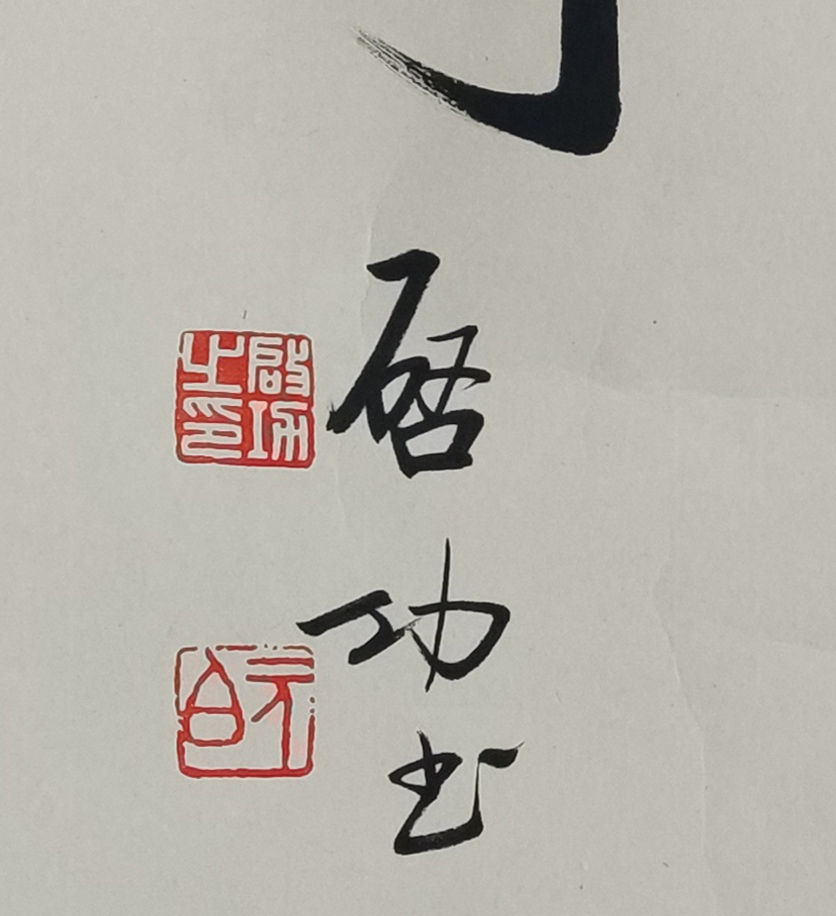 启功书
啟功之印
元白